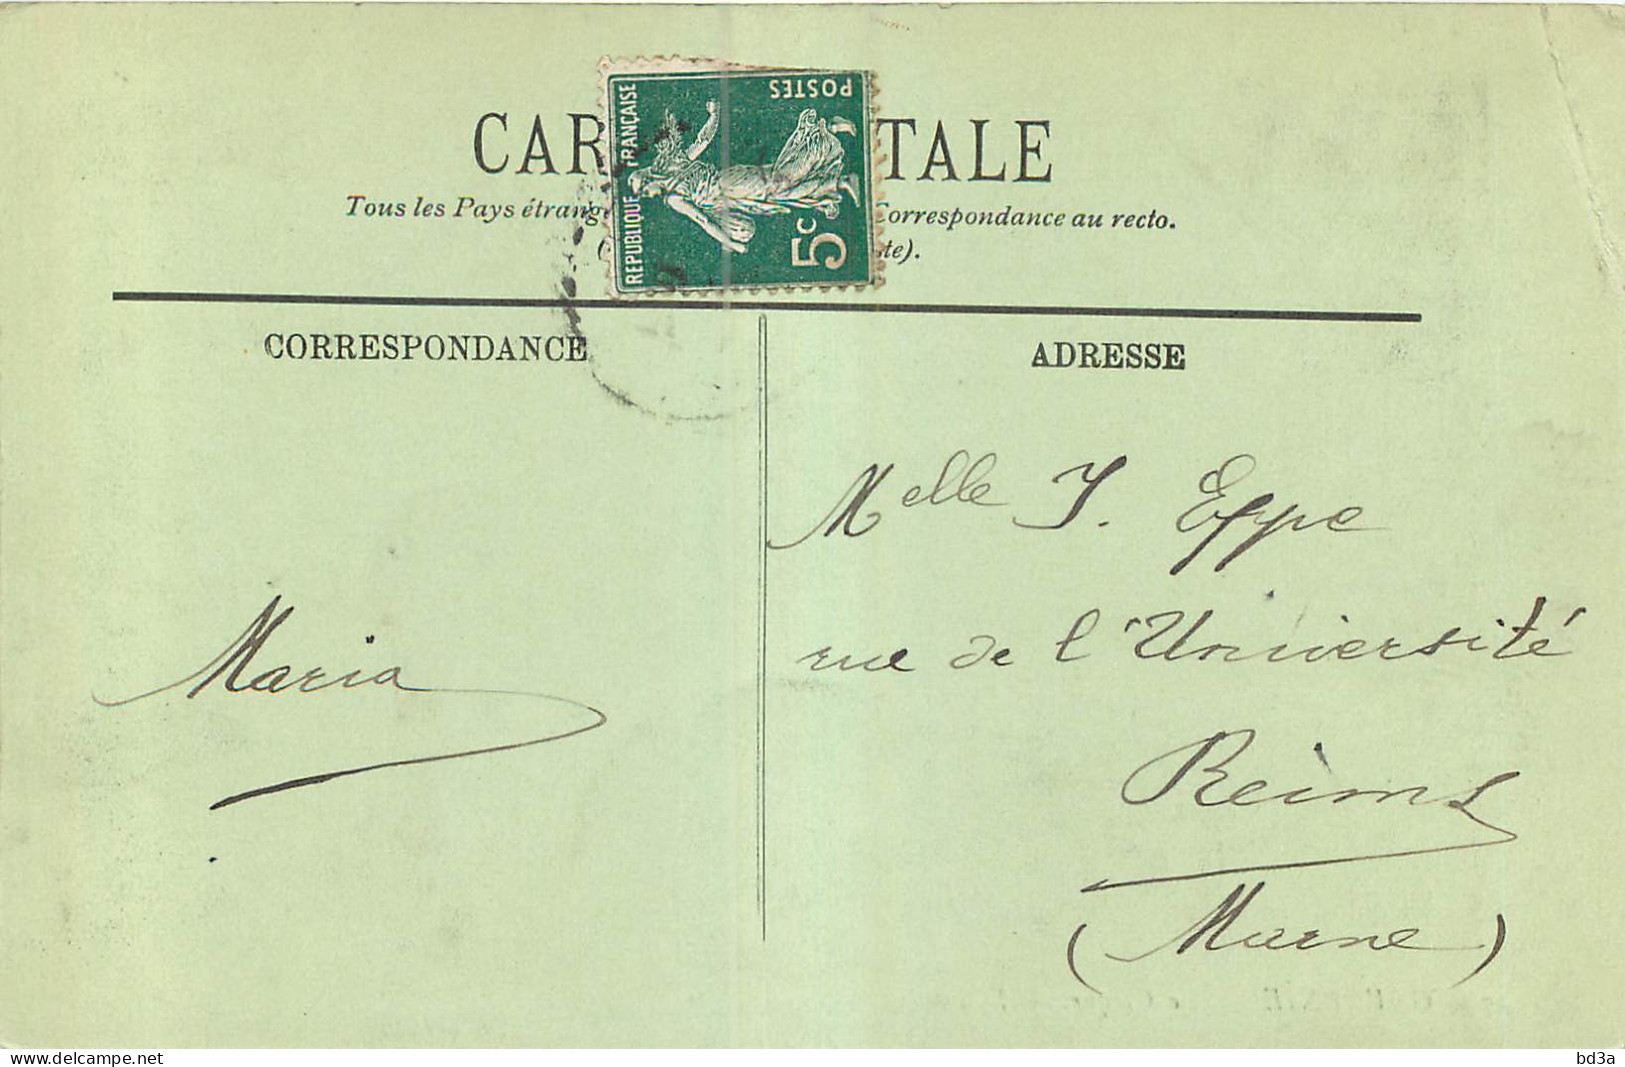 CAR TALE
Tous les Pays étrang Correspondance au recto.
( ste).
POSTES
REPUBLIQUE FRANÇAISE
5c
CORRESPONDANCE
ADRESSE
Melle J. Eppe
rue de l'Université
Reims
(Marne)
Maria
www.delcampe.net
bd3a